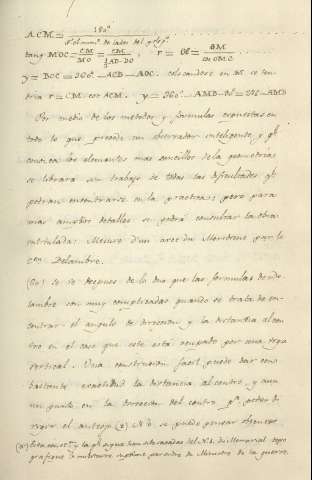 ACM = 180° / Nº el num.º de lados del polig.º
tang MOC = CM / MO = CM / ½AD-DO , r = OC = OM / cos OMC
y = DOC = 360° - ACD - AOC. colocandose en M se ten-
dria r = CM = cot ACM. y = 360° - AMD -
Por medio de los metodos y formulas expuestas en
todo lo que precede un observador inteligente, y qe
conozca los elementos mas sencillos de la geometria
se librará sin trabajo de todas las dificultades qe
podran encontrarse en la practica; pero para
mas amplios detalles se podrá consultar la obra
intitulada: Mesure d'un arc du Meridien par le
Cen. Delambre.
se despues de lo que las formulas de De-
lambre son muy complicadas quando se trata de en-
contrar el angulo de direccion y la distancia al cen-
tro en el caso que este está ocupado por una
vertical. Una construccion facil puede dar con
bastante exactitud la distancia al centro, y aun
un punto en la direccion del centro pª acer
el anteojo (2) Nº 3. se puede
(2) Esta y la qe sigue han sido sacadas del N.1. de Memorial topo-
grafique militaire impreso por orden de Ministro de la guerre.